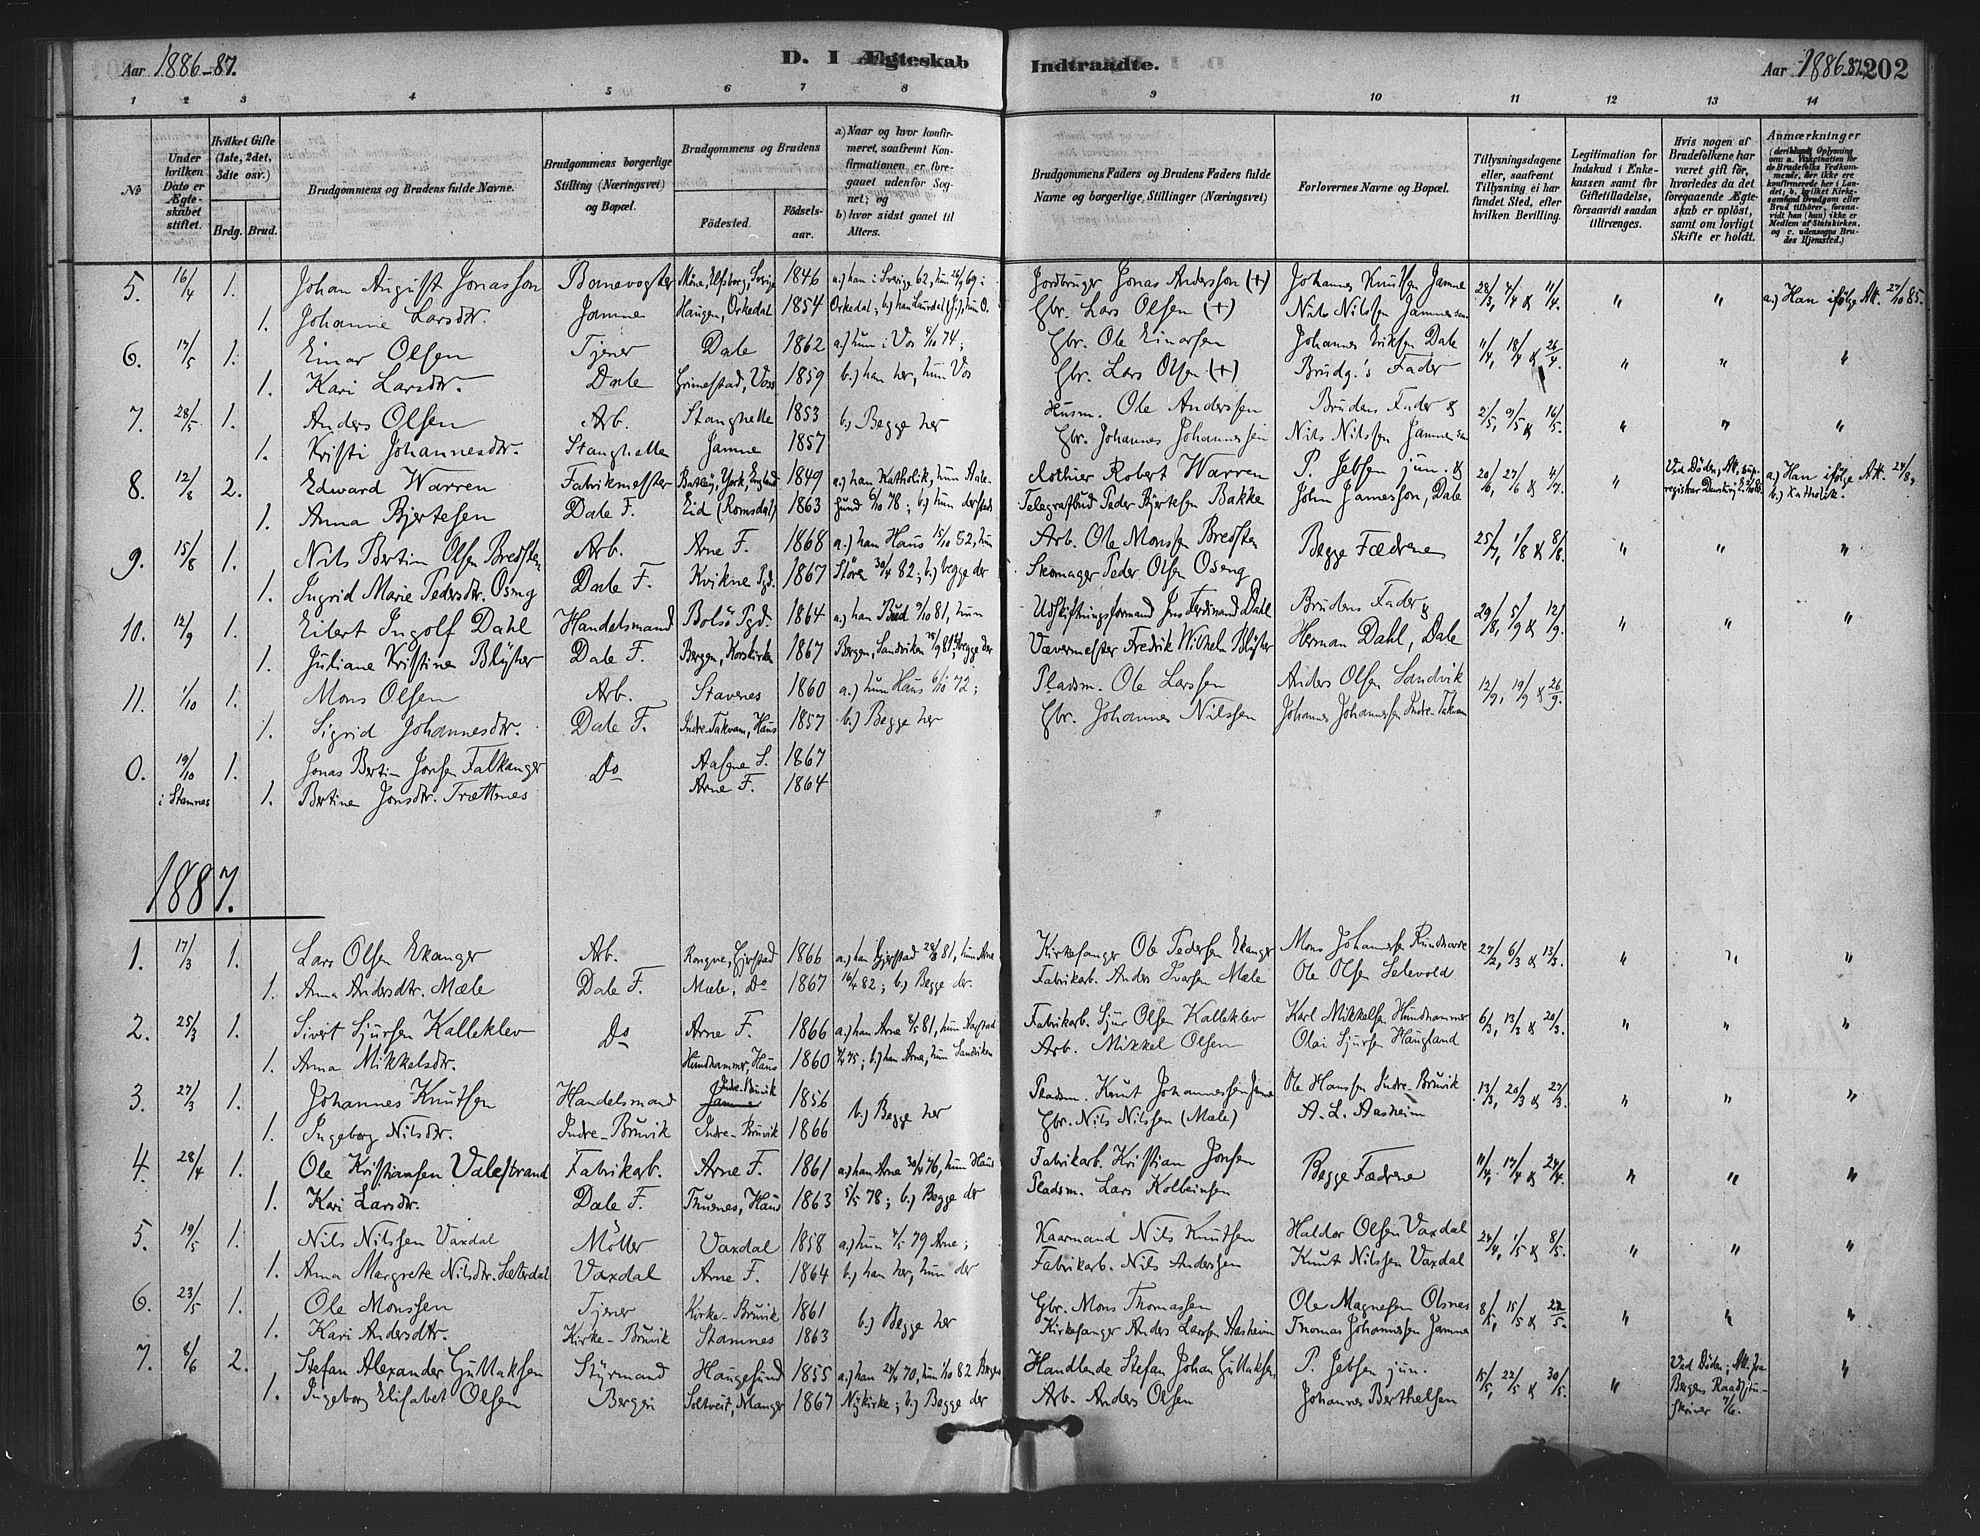 Aar 1886-87.
D. I Ægteskab
Indtraadte.
Aar 1886-87. 202
1 2 3 4 5 6 7 8 9 10 11 12 13 14
№
Under hvilken Dato er Ægteskabet stiftet.
Hvilket Gifte (1ste, 2det, 3die osv.)
Brdg. Brud.
Brudgommens og Brudens fulde Navne.
Brudgommens borgerlige Stilling (Næringsvei) og Bopæl.
Brudgommens og Brudens
Födested
Födsels-aar.
a) Naar og hvor konfirmeret, saafremt Konfirmationen er foregaaet udenfor Sognet; og
b) hvor sidst gaaet til Alters.
Brudgommens Faders og Brudens Faders fulde Navne og borgerlige Stillinger (Næringsvei)
Forlovernes Navne og Bopæl.
Tillysningsdagene eller, saafremt Tillysning ei har fundet Sted, efter hvilken Bevilling.
Legitimation for Indskud i Enkekassen samt for Giftetilladelse, forsaavidt saadan tiltrænges.
Hvis nogen af Brudefolkene har været gift før, hvorledes da det foregaaende Ægteskab er oplöst, samt om lovligt Skifte er holdt.
Anmærkninger
5. 16/4 1. Johan August Jonasson Banevogter 1846 Jordbruger Jonas Andersson (+) Johannes Knutsen Jamne 28/3, 4/4 & 11/4. " " a.) Han ifølge Att. 27/10 85.
1. Johanne Larsdtr. Jamne Haugen, Orkedal 1854 Gbr. Lars Olsen (+) Nils Nilssen Jamne
6. 17/5 1. Einar Olsen Tjener Dale 1862 a.) hun i Vos 4/10 74; Gbr. Ole Einarsen Johannes Eriksen Dale 11/4, 18/4 & 26/4. " " "
1. Kari Larsdtr. Dale Grimestad, Voss 1859 b.) han her, hun Vos Gbr. Lars Olsen (+) Brudg.'s Fader
7. 28/5 1. Anders Olsen Arb. Stanghelle 1853 b.) Begge her Husm. Ole Anderssen Brudens Fader & 2/5, 9/5 & 16/5. " " "
1. Kristi Johannesdtr. Stanghelle Jamne 1857 Gbr. Johannes Johannessen Nils Nilssen Jamne
8. 12/8 2. Edward Warren Fabrikmester Batley, York, England 1849 a.) han Katholik, hun Aale- Clothier Robert Warren P. Jebsen jun. & 20/6, 27/6 & 4/7. " Ved Döden, a.) Han ifølge Att. 24/8,
1. Anna Bjertesen Dale F. Eid (Romsdal) 1863 sund 6/10 78; b.) hun dersteds Telegrafbud Peder Bjertesen Bakke John Jamesson, Dale b.) Katholik.
9. 15/8 1. Nils Bertin Olsen Bredsten Arb. Arne F. 1868 a.) han Haus 15/10 82, hun Arb. Ole Monssen Bredsten Begge Fædrene 25/7, 1/8 & 8/8. " " "
1. Ingrid Marie Pedersdtr. Oseng Dale F. Kvikne Pgd. 1867 Stören 30/4 82; b.) begge der Skomager Peder Olsen Oseng
10. 12/9 1. Eilert Ingolf Dahl Handelsmand Bolsö Pgd. 1864 a.) han Bud 9/10 81, hun Udskiftningsformand Jens Ferdinand Dahl Brudens Fader & 29/8, 5/9 & 12/9. " " "
1. Juliane Kristine Blyster Dale F. Bergen, Korskirken 1867 Bergen, Sandviken Vævermester Fredrik Wilhelm Blyster Herman Dahl, Dale
11. 1/10 1. Mons Olsen Arb. Stavenes 1860 a.) hun Haus 6/10 72; Pladsm. Ole Larssen Anders Olsen Sandvik 12/9, 19/9 & 26/9.
1. Sigrid Johannesdtr. Dale F. Indre-Takvam, Haus 1857 b.) Begge her Gbr. Johannes Nilssen Johannes Johannessen Indre-Takvam
0. 19/10 1. Jonas Bertin Jonsen Falkanger Do Aasene S. 1867
i Stamnes 1. Bertine Jonsdtr. Trættenes Arne F. 1864
1887.
1. 17/3 1. Lars Olsen Ekanger Arb. Rongve, Gjerstad 1866 a.) han Gjerstad 28/8 81, hun Arne Kirkesanger Ole Pedersen Ekanger Mons Johannessen Rundhovde 27/2, 6/3 & 13/3. " " "
1. Anna Andersdtr. Mæle Dale F. Mæle, Do 1867 16/4 82; b.) Begge der. Fabrikarb. Anders Ivarsen Mæle Ole Olsen Selevold
2. 25/3 1. Sivert Sjursen Kalleklev Do Arne F. 1866 Fabrikarb. Sjur Olsen Kalleklev Karl Mikkelsen Hundhammer 6/3, 13/3 & 20/3. " " "
1. Anna Mikkelsdtr. Hundhammer, Haus 1860 b.) han Arne, hun Sandviken Arb. Mikkel Olsen Olai Sjursen Haugland
3. 27/3 1. Johannes Knutsen Handelsmand Indre-Bruvik 1856 b.) Begge her Pladsm. Knut Johannessen Jamne Ole Hanssen Indre-Bruvik 13/3, 20/3 & 27/3. " " "
1. Ingeborg Nilsdtr. Indre-Bruvik Indre-Bruvik 1866 Gbr. Nils Nilssen (Mæle) A. L. Aasheim
4. 28/4 1. Ole Kristiansen Valestrand Fabrikarb. Arne F. 1861 a.) han Arne 30/4 76, hun Haus Fabrikarb. Kristian Jonsen Begge Fædrene 11/4, 17/4 & 24/4. " " "
1. Kari Larsdtr. Dale F. Thunes, Haus 1863 5/5 78; b.) Begge der Pladsm. Lars Kolbeinsen
5. 19/5 1. Nils Nilssen Vaxdal Möller Vaxdal 1858 a.) hun 4/5 79 Arne; Kaarmand Nils Knutsen Haldor Olsen Vaxdal 24/4, 1/5 & 8/5. " " "
1. Anna Margrete Nilsdtr. Sætterdal Vaxdal Arne F. 1864 b.) han her, hun der Fabrikarb. Nils Anderssen Knut Nilssen Vaxdal
6. 23/5 1. Ole Monssen Tjener Kirke-Bruvik 1861 b.) Begge her Gbr. Mons Thomassen Ole Magnesen Olsnes 8/5, 15/5 & 22/5. " " "
1. Kari Andersdtr. Kirke-Bruvik Stamnes 1863 Kirkesanger Anders Larssen Aasheim Thomas Johannessen Jamne
7. 8/6 2. Stefan Alexander Guttaksen Styrmand Haugesund 1855 a.) han 24/4 70, hun 1/10 82 Bergen Handlende Stefan Johan Guttaksen P. Jebsen jun. 15/5, 22/5 & 30/5. " Ved Döden; Att. fra "
1. Ingeborg Elisabet Olsen Bergen Soltveit, Manger 1867 Nykirke; b.) Begge der Arb. Anders Olsen Johannes Berthelsen Bergens Raadstu-
skriver 7/6.